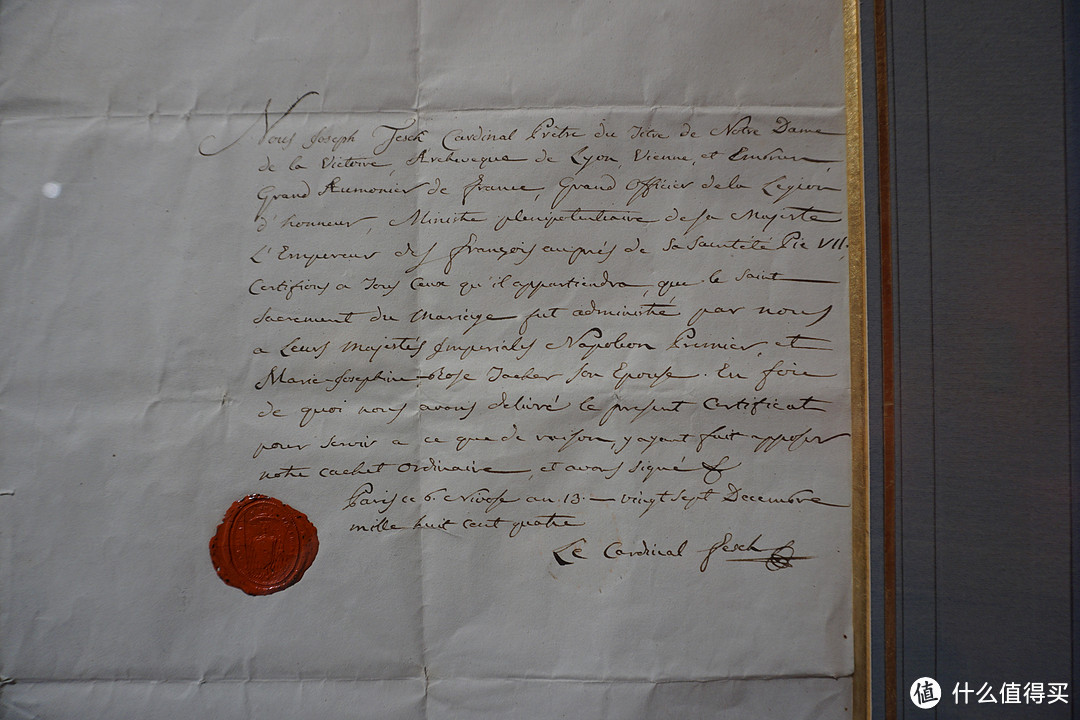 Nous Joseph Fesch Cardinal Prêtre du Titre de Notre Dame
de la Victoire, Archeveque de Lyon, Vienne, et Embrun,
Grand Aumonier de france, Grand Officier de la Legion
d'honneur, Ministre plenipotentiaire de sa Majesté
L'Empereur des françois auprés de Sa Sainteté Pie VII,
Certifions a Tous Ceux qu'il appartiendra, que le Saint
Sacrement du Mariage fut administré par nous
a Leurs Majestés Imperiales Napoleon Premier, et
Marie-Josephine-Rose Tacher son Epouse. En foie
de quoi nous avons delivré le present Certificat
pour servir a ce que de raison, y ayant fait apposer
notre cachet ordinaire, et avons signé
Paris ce 6. Nivose an 13. — vingt sept Decembre
mille huit cent quatre
Le Cardinal Fesch
值 什么值得买